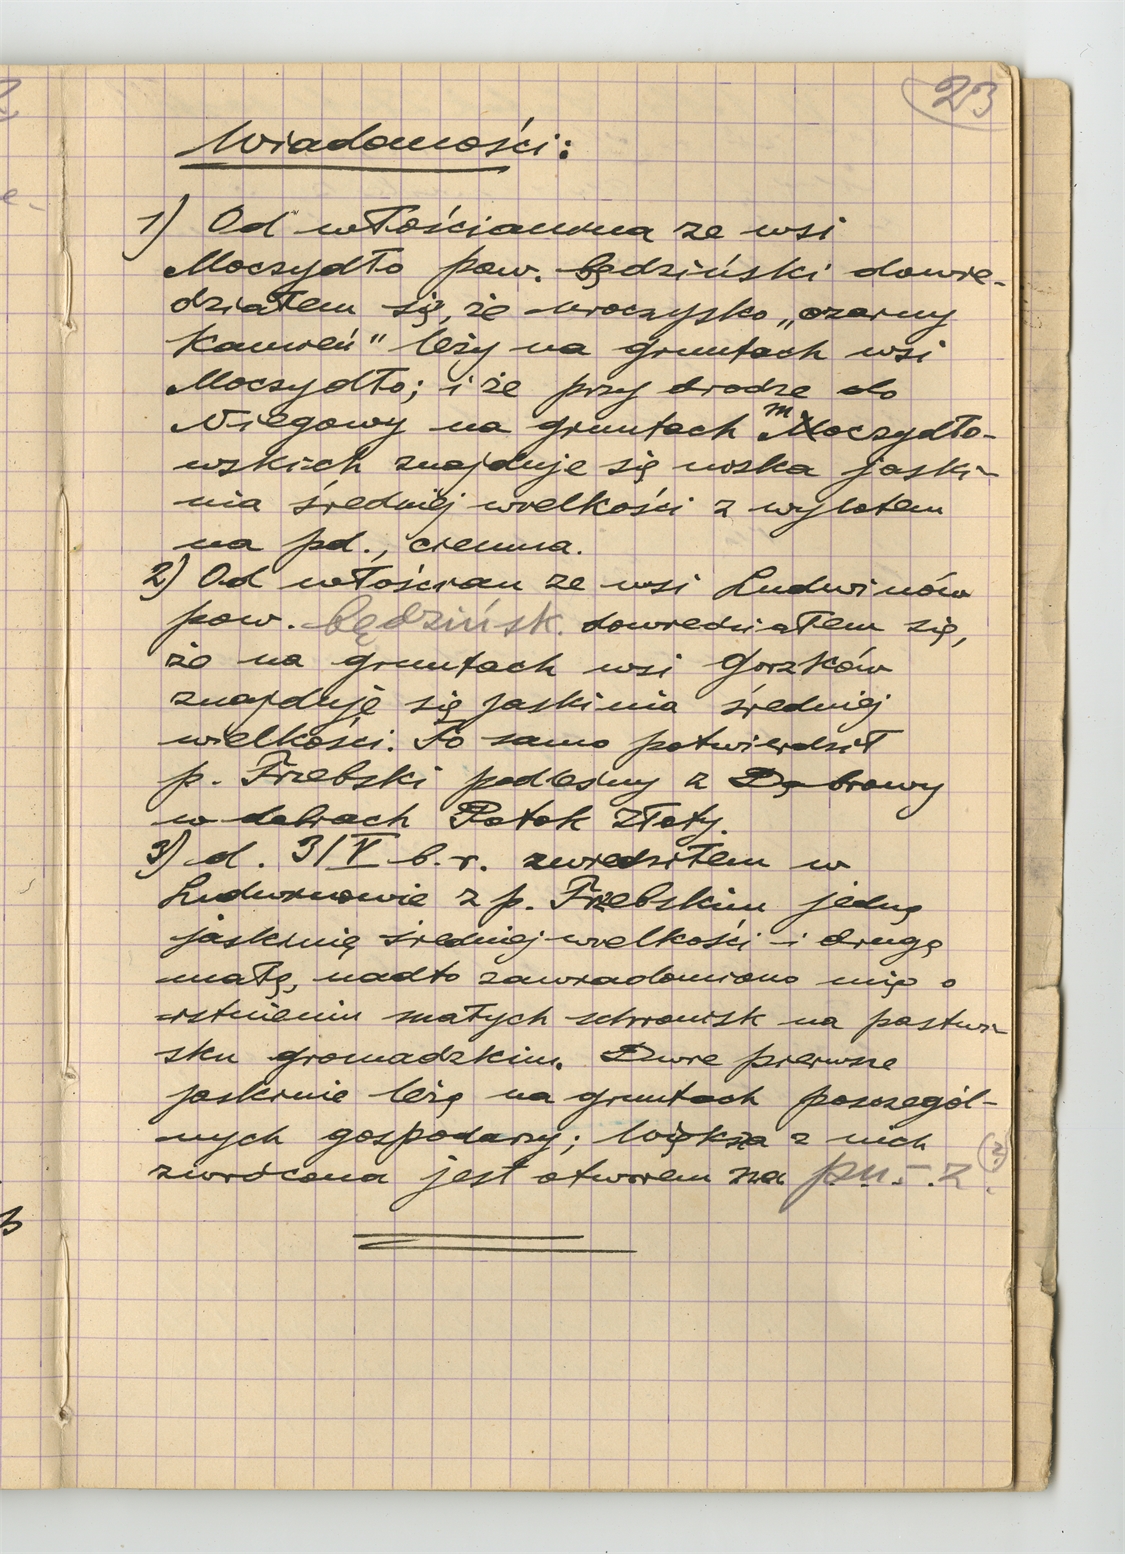 23
Wiadomości:
1) Od włościanina ze wsi
Moczydło pow. będziński dowie-
działem się, że uroczysko „czarny
Kamień" leży na gruntach wsi
Moczydło; i że przy drodze do
Niegowy na gruntach moczydło-
wskich znajduje się wąska jaski-
nia średniej wielkości z wylotem
na pd., ciemna.
2) Od włościan ze wsi Ludwinów
pow. będzińsk. dowiedziałem się,
że na gruntach wsi Gorzków
znajduje się jaskinia średniej
wielkości. To samo potwierdził
p. Trzebski podleśny z Dąbrowy
w dobrach Potok Złoty.
3) d. 3/V b.r. zwiedziłem w
Ludwinowie z p. Trzebskim jedną
jaskinię średniej wielkości i drugą
małą, nadto zawiadomiono mię o
istnieniu małych schronisk na pastwi-
sku gromadzkim. Dwie pierwsze
jaskinie leżą na gruntach poszczegól-
nych gospodarzy; większa z nich
zwrócona jest otworem na pn.-z. (?)